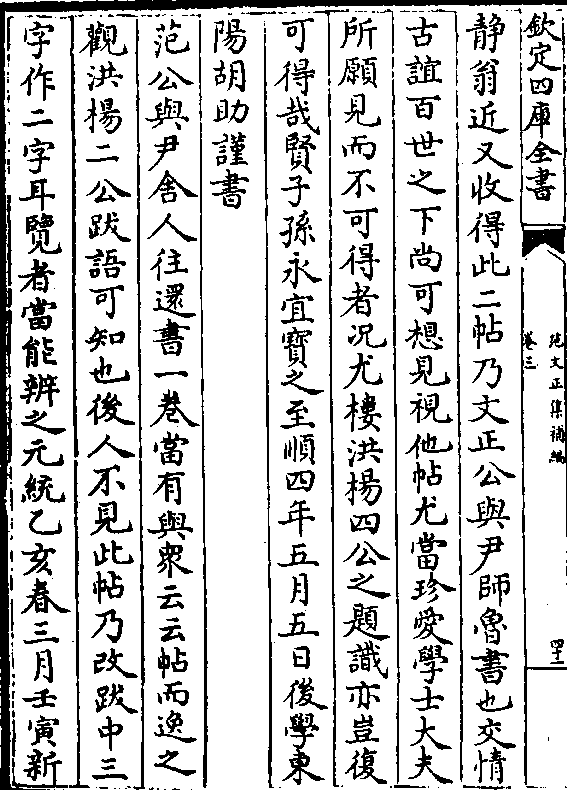 欽定四庫全書
范文正集補編
卷三
四十二
靜翁近又收得此二帖乃文正公與尹師魯書也交情
古誼百世之下尚可想見視他帖尤當珍愛學士大夫
所願見而不可得者况尤樓洪楊四公之題識亦豈復
可得哉賢子孫永宜寳之至順四年五月五日後學東
陽胡助謹書
范公與尹舍人往還書一巻當有與衆云云帖而逸之
觀洪楊二公跋語可知也後人不見此帖乃改跋中三
字作二字耳覽者當能辨之元統乙亥春三月壬寅新